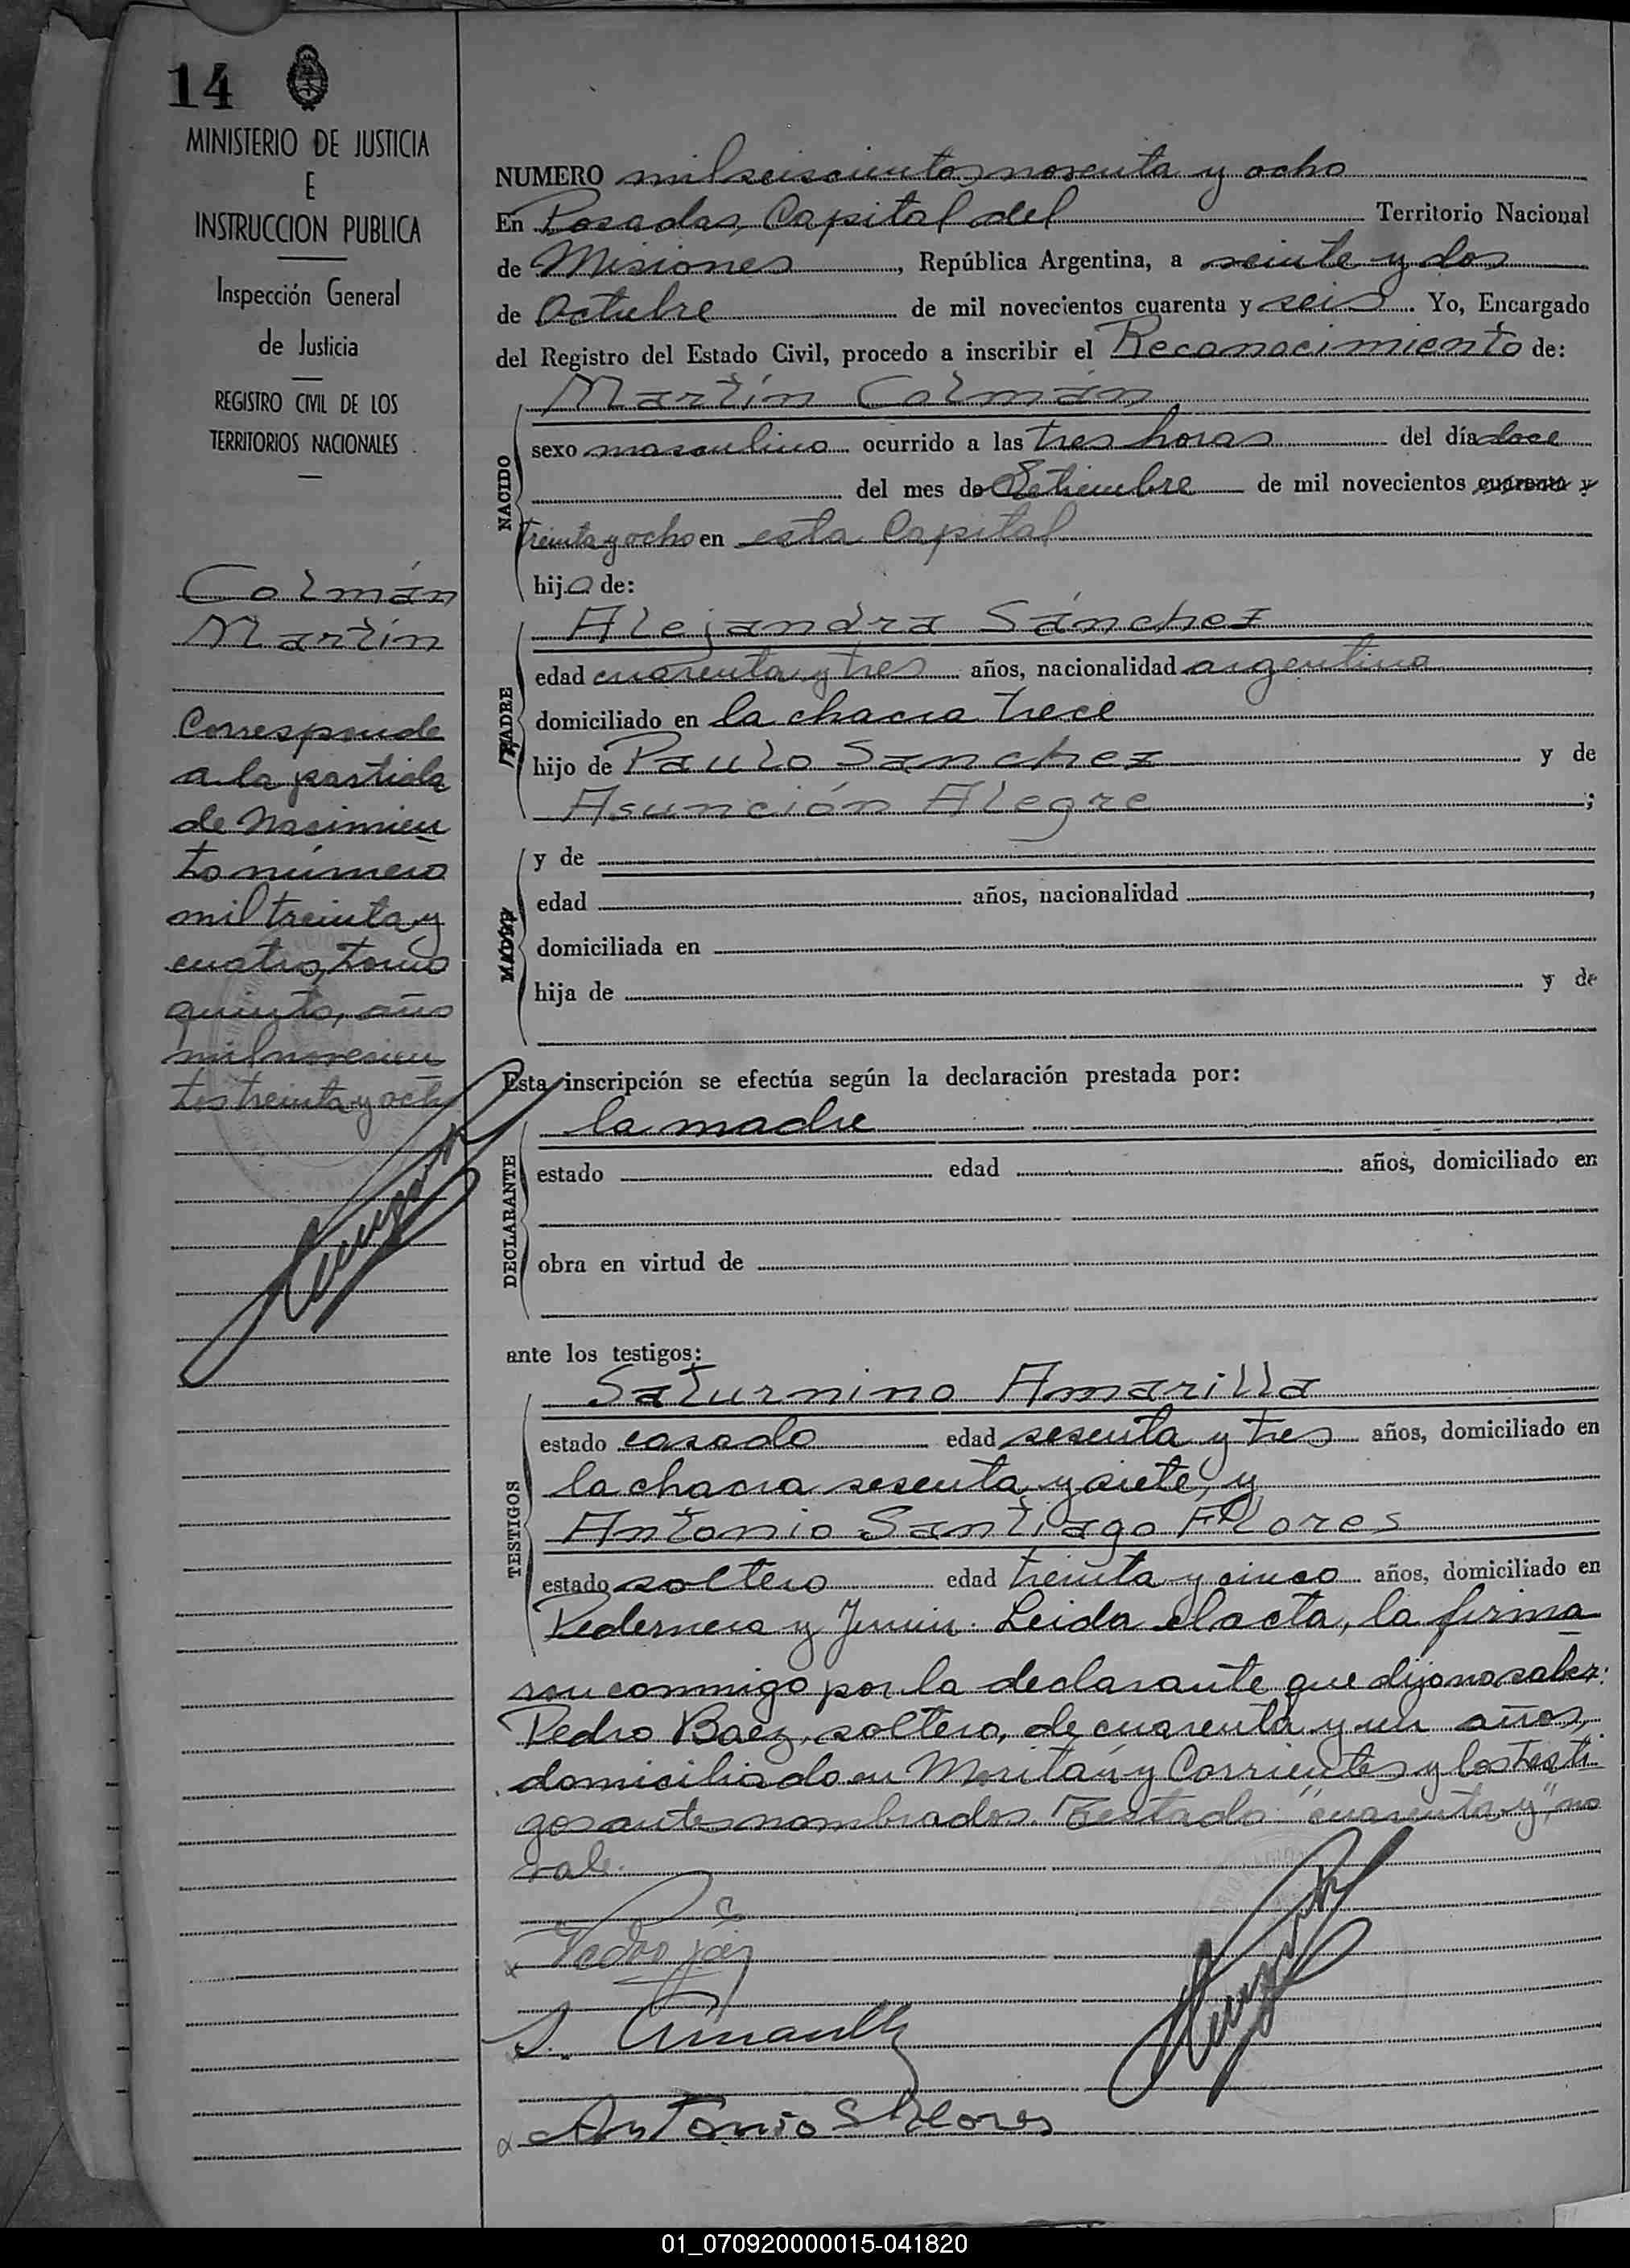 14
MINISTERIO DE JUSTICIA
E
INSTRUCCION PUBLICA
Inspección General
de Justicia
REGISTRO CIVIL DE LOS
TERRITORIOS NACIONALES
Colmán
Martín
Corresponde
a la partida
de Nacimien
to número
mil treinta y
cuatro, tomo
quinto, año
mil novecien
tos treinta y ocho
NUMERO mil seiscientos noventa y ocho
En Posadas, Capital del Territorio Nacional
de Misiones, República Argentina, a veinte y dos
de Octubre de mil novecientos cuarenta y seis. Yo, Encargado
del Registro del Estado Civil, procedo a inscribir el Reconocimiento de:
NACIDO
Martín Colmán
sexo masculino ocurrido a las tres horas del día doce
del mes de Setiembre de mil novecientos cuarenta y
treinta y ocho en esta Capital
hijo de:
PADRE
Alejandra Sánchez
edad cuarenta y tres años, nacionalidad argentina,
domiciliado en la chacra trece
hijo de Paulo Sanchez y de
Asunción Alegre;
MADRE
y de
edad años, nacionalidad,
domiciliada en
hija de y de
Esta inscripción se efectúa según la declaración prestada por:
DECLARANTE
la madre
estado edad años, domiciliado en
obra en virtud de
ante los testigos:
TESTIGOS
Saturnino Amarilla
estado casado edad sesenta y tres años, domiciliado en
la chacra sesenta y siete, y
Antonio Santiago Flores
estado soltero edad treinta y cinco años, domiciliado en
Pedernera y Junin. Leida el acta, la firma
ron conmigo por la declarante que dijo no saber:
Pedro Baez, soltero, de cuarenta y un años,
domiciliado en Moritán y Corrientes y los testi
gos antes nombrados. Testado: "cuarenta y", no
vale.
Antonio S Flores
01_070920000015-041820